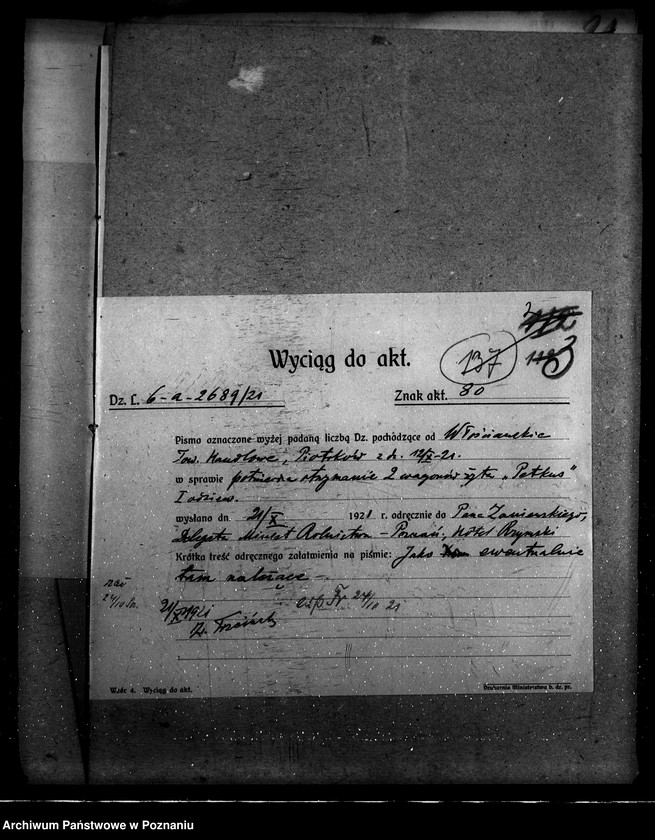 Wyciąg do akt.
137
3
Dz. L. 6-a-2689/21
Znak akt. 80
Pismo oznaczone wyżej podaną liczbą Dz. pochodzące od Włościańskie
Tow. Handlowe, Piotrków z dn. 12/X-21.
w sprawie potwierdza otrzymanie 2 wagonów żyta „Petkus"
I odsiew.
wysłano dn. 21/X 1921 r. odręcznie do Pana
Delegata Minist. Rolnictwa - Poznań, Hôtel Rzymski
Krótka treść odręcznego załatwienia na piśmie: Jako ewentualnie
tam należące -
24/10
21/X 1921
24/10 21
Wzór 4. Wyciąg do akt.
Drukarnia Ministerstwa b. dz. pr.
Archiwum Państwowe w Poznaniu